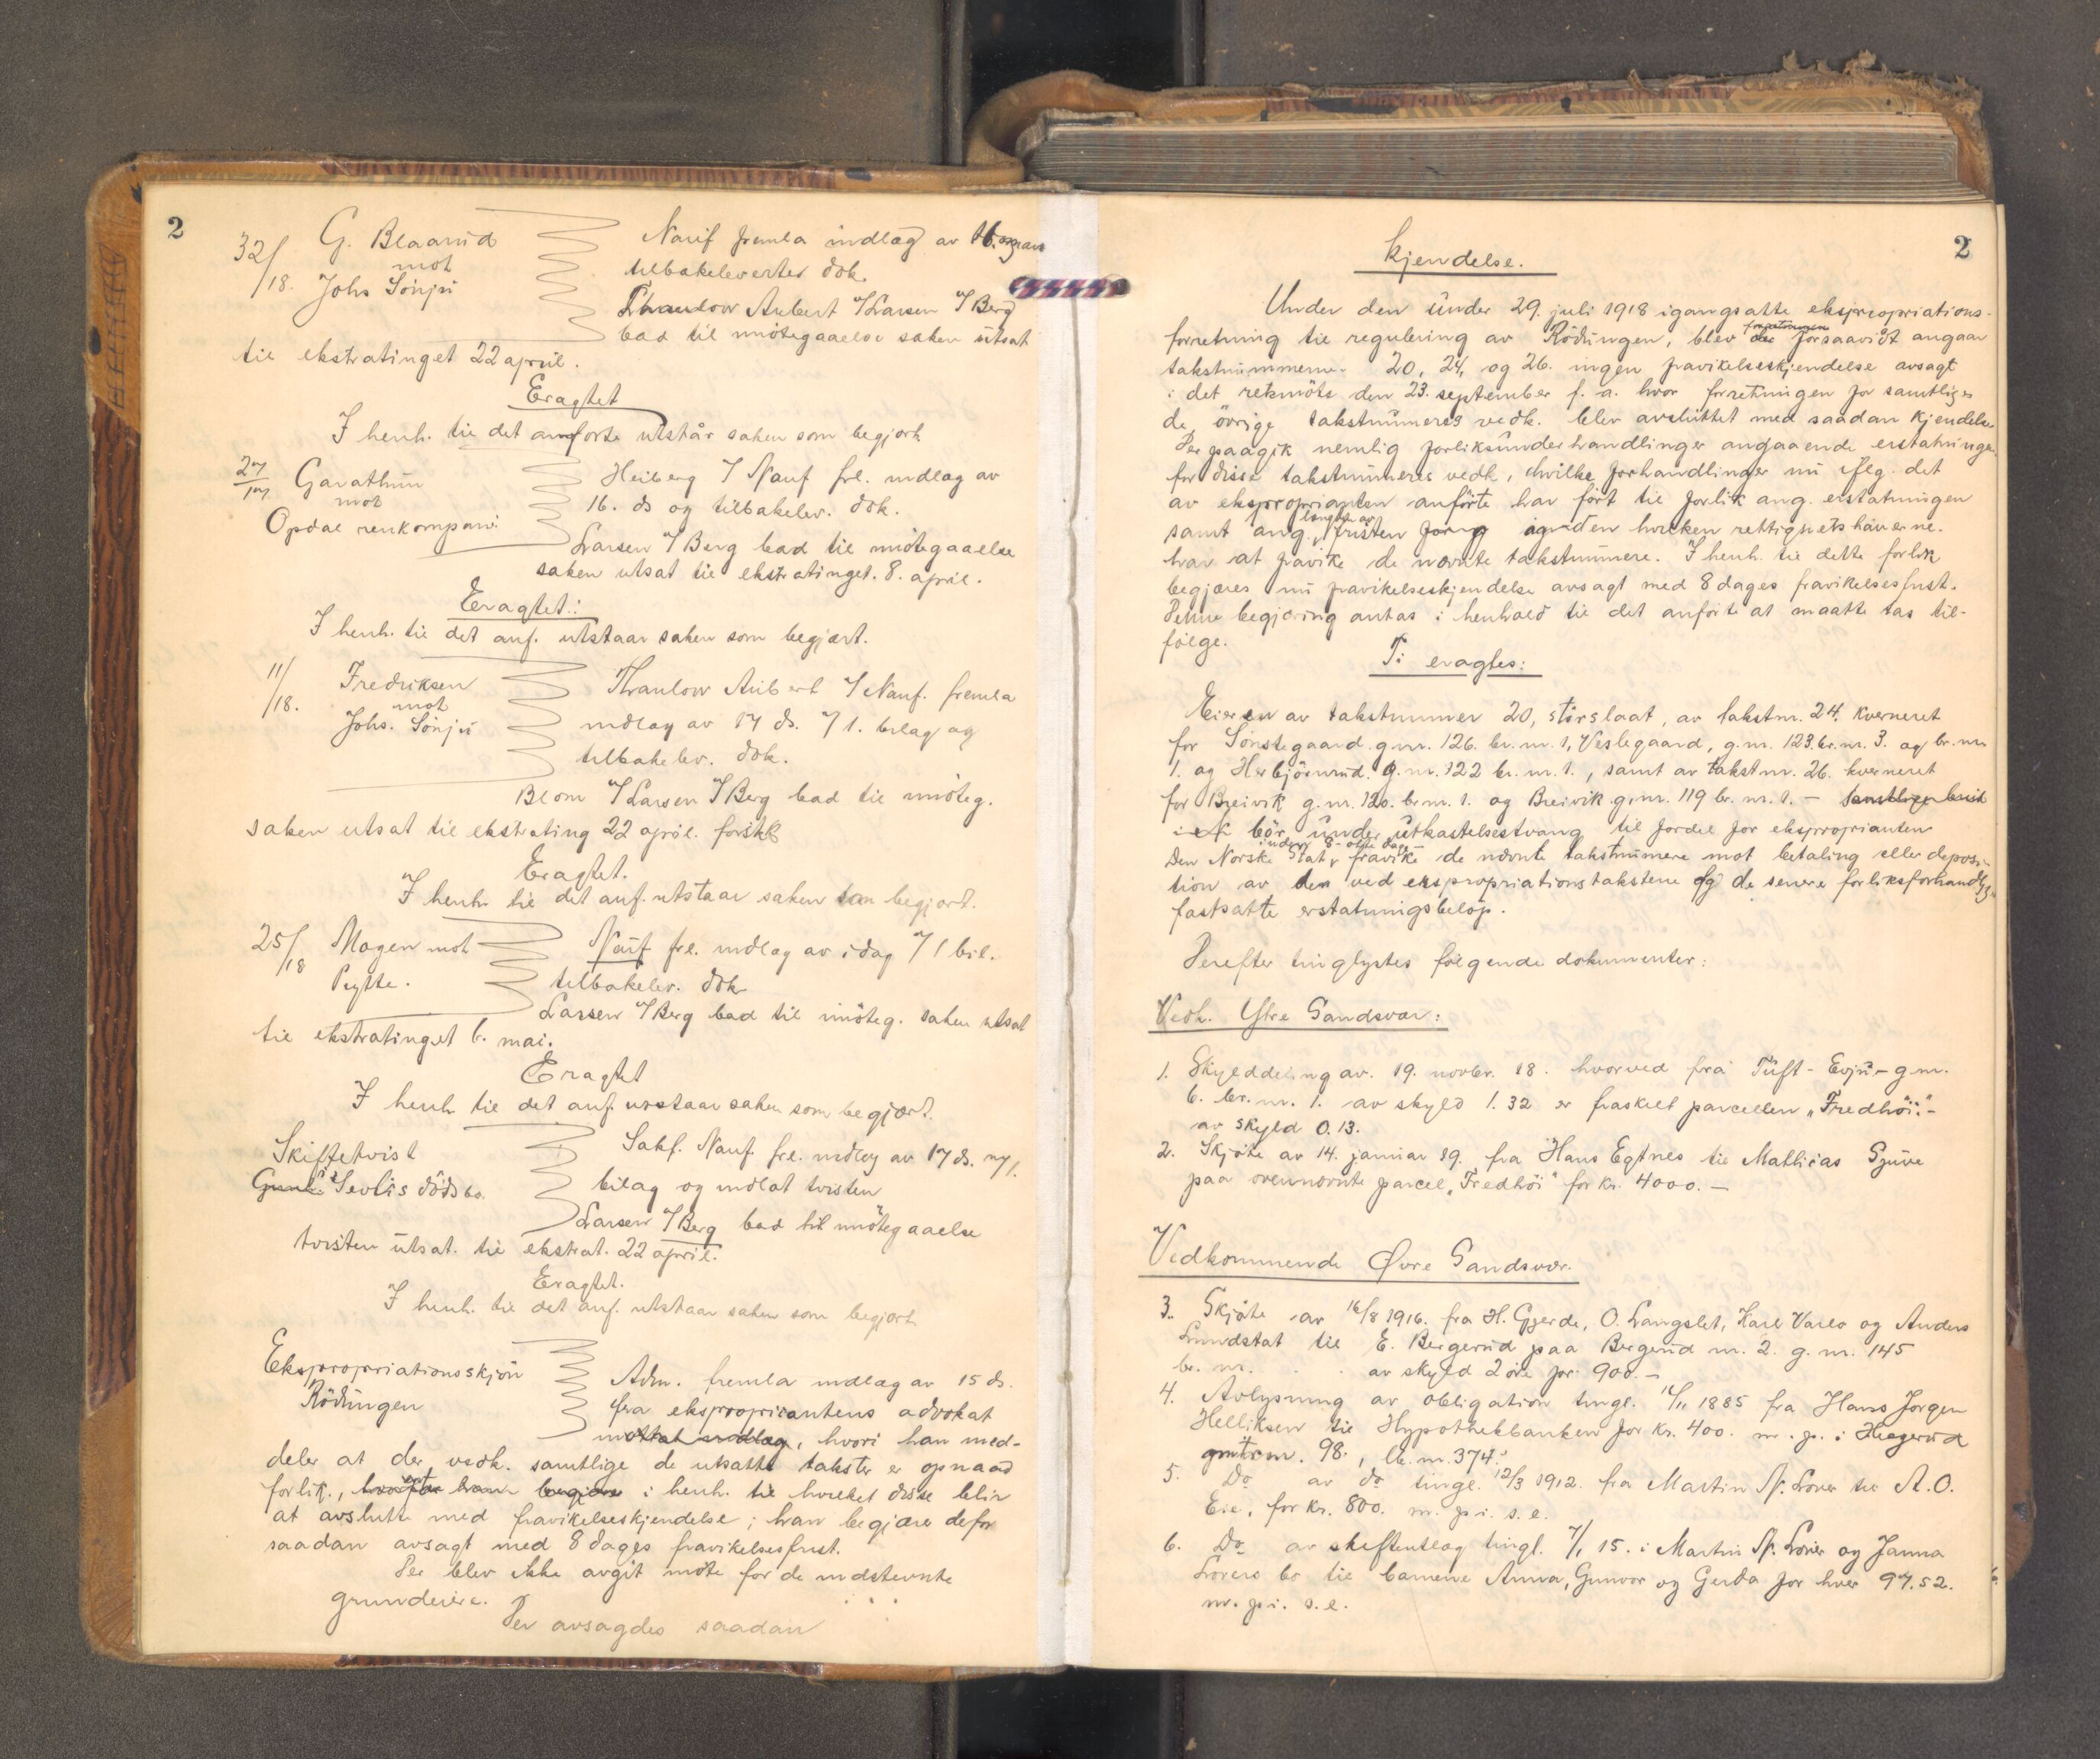 2
32/18.
G. Blaarud
mot
Johs Sönju
Nauf fremla indlæg av
tilbakeleverter dok.
Thaulow Aubert 7/ Larsen 7/ Berg
bad til imötegaaelse saken utsat
til ekstratinget 22 april.
Eragtet
I henh. til det anförte utstår saken som begjært
27/17
Garathun
mot
Opdal renkompani
Heiberg 7/ Nauf frl. indlæg av
16. ds og tilbakelev. dok.
Larsen 7/ Berg bad til imötegaaelse
saken utsat til ekstratinget. 8. april.
Eragtet:
I henh. til det anf. utstaar saken som begjært.
11/18.
Fredriksen
mot
Johs. Sönju
Thaulow Aubert 7/ Nauf. fremla
indlæg av 17 ds. 7/ 1. bilag og
tilbakelev. dok.
Blom 7/ Larsen 7/ Berg bad til imöteg.
saken utsat til ekstrating 22 april.
Eragtet.
I henh til det anf. utstaar saken som begjært.
25/18
Mogen mot
Pytte.
Nauf frl. indlæg av idag 7/ 1 bil.
tilbakelev. dok
Larsen 7/ Berg bad til imöteg. saken utsat
til ekstratinget 6. mai.
Eragtet
I henh til det anf. utstaar saken som begjært.
Skiftetvist
dödsbo.
Sakf. Nauf. frl. indlæg av 17 ds. m/1.
bilag og indlot tvisten
Larsen 7/ Berg bad til imötegaaelse
tvisten utsat. til ekstrat. 22 april.
Eragtet.
I henh. til det anf. utstaar saken som begjært
Ekspropriationsskjön
Rödungen
Adm. fremla indlæg av 15 ds.
fra ekspropriantens advokat
mottat indlæg, hvori han med-
deler at der vedk. samtlige de utsatte takster er opnaad
forlik, i henh. til hvilket disse blir
at avslutte med fravikelseskjendelse; han begjærer defor
saadan avsagt med 8 dages fravikelsesfrist.
Der blev ikke avgit möte for de indstevnte
grundeiere.
Der avsagdes saadan
2
Kjendelse.
Under den under 29. juli 1918 igangsatte ekspropriations-
forretning til regulering av Rödungen, blev der forsaavidt angaar
takstnummerne 20, 24, og 26. ingen fravikelseskjendelse avsagt
i det retsmöte den 23. september f. a. hvor forretningen for samtlige
de övrige takstnumeres vedk. blev avsluttet med saadan kjendelse
Der paagik nemlig forliksunderhandlinger angaaende erstatningen
for disse takstnumeres vedk, hvilke forhandlinger nu iflg. det
av eksproprianten anförte har fört til forlik ang. erstatningen
samt ang. längden av fristen inden hvilken rettighetshaverne
har at fravike de nævnte takstnumere. I henh. til dette forlik
begjæres nu fravikelseskjendelse avsagt med 8 dages fravikelsesfrist.
Denne begjæring antas i henhold til det anförte at maatte tas til-
fölge.
Ti eragtes:
Eieren av takstnummer 20, störslaat, av takstnr. 24. kverneret
for Sönstegaard g.nr. 126. br.nr. 1, Veslegaard, g.nr. 123. br.nr. 3. og br.nr.
1. og Herbjörnrud. g.nr. 122 br.nr. 1., samt av takstnr. 26. kverneret
for Breivik g.nr. 120. br.nr. 1. og Breivik g.nr. 119 br.nr. 1. —
bör under utkastelsestvang til fordel for eksproprianten
inden 8 - otte dage
Den Norske Stat, fravike de nævnte takstnumere mot betaling eller deposi-
tion av den ved ekspropriationstakstene og de senere forliksforhandlinger
fastsatte erstatningsbelöp.
Derefter tinglystes fölgende dokumenter:
Vedk. Ytre Sandsvær:
1. Skylddeling av. 19. novbr. 18. hvorved fra Tuft - Evju - g.nr.
6. br. nr. 1. av skyld 1.32 er fraskilt parcellen „Fredhöi“ -
av skyld 0.13.
2. Skjöte av 14. januar 19. fra Hans Egtnes til Mathias Gjuve
paa ovennævnte parcel „Fredhöi“ for kr. 4000. —
Vedkommende Øvre Sandsvær.
3. Skjöte av 16/8 1916. fra H. Gjerde, O. Langslet, Karl Varlo og Anders
Lundstat til E. Bergerud paa Bergerud nr. 2. g. nr. 145
br. nr. av skyld 2 öre for 900. —
4. Avlysning av obligation tingl. 16/11 1885 fra Hans Jörgen
Helliksen til Hypothekbanken for kr. 400. m. p. i Hegerud
98., lb. nr. 374.
5. Do av do tingl. 12/3 1912. fra Martin Sp. Lover til A. O.
Eie, for kr. 800. m. p. i. s. e.
6. Do av skifteutlæg tingl. 7/1 15. i Martin Sp. Lover og Janna
Lovers bo til barnene Anna, Gunvor og Gerda for hver 97.52.
m. p. i. s. e.